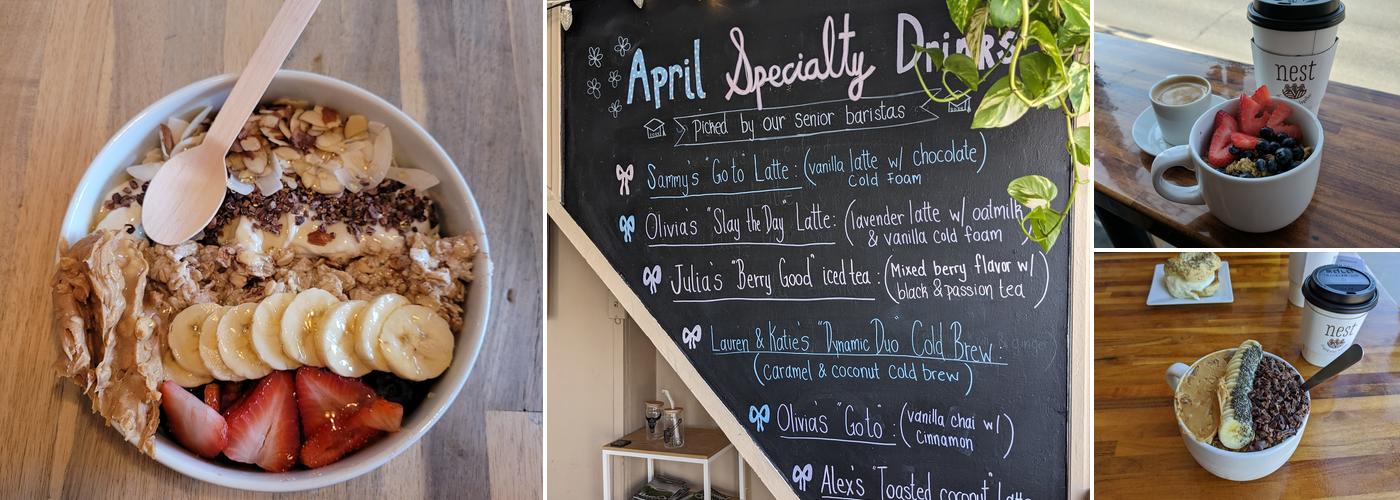 April Specialty Drinks
picked by our senior baristas
Sammy's "Go to" Latte: (vanilla latte w/ chocolate)
cold foam
Olivia's "Slay the Day" Latte: (lavender latte w/ oatmilk
& vanilla cold foam)
Julia's "Berry Good" iced tea: (Mixed berry flavor w/
black & passion tea)
Lauren & Katie's "Dynamic Duo" Cold Brew: & ginger
(caramel & coconut cold brew)
Olivia's "Go to": (vanilla chai w/
cinnamon)
Alex's "Toasted coconut" Latte
nest
nest